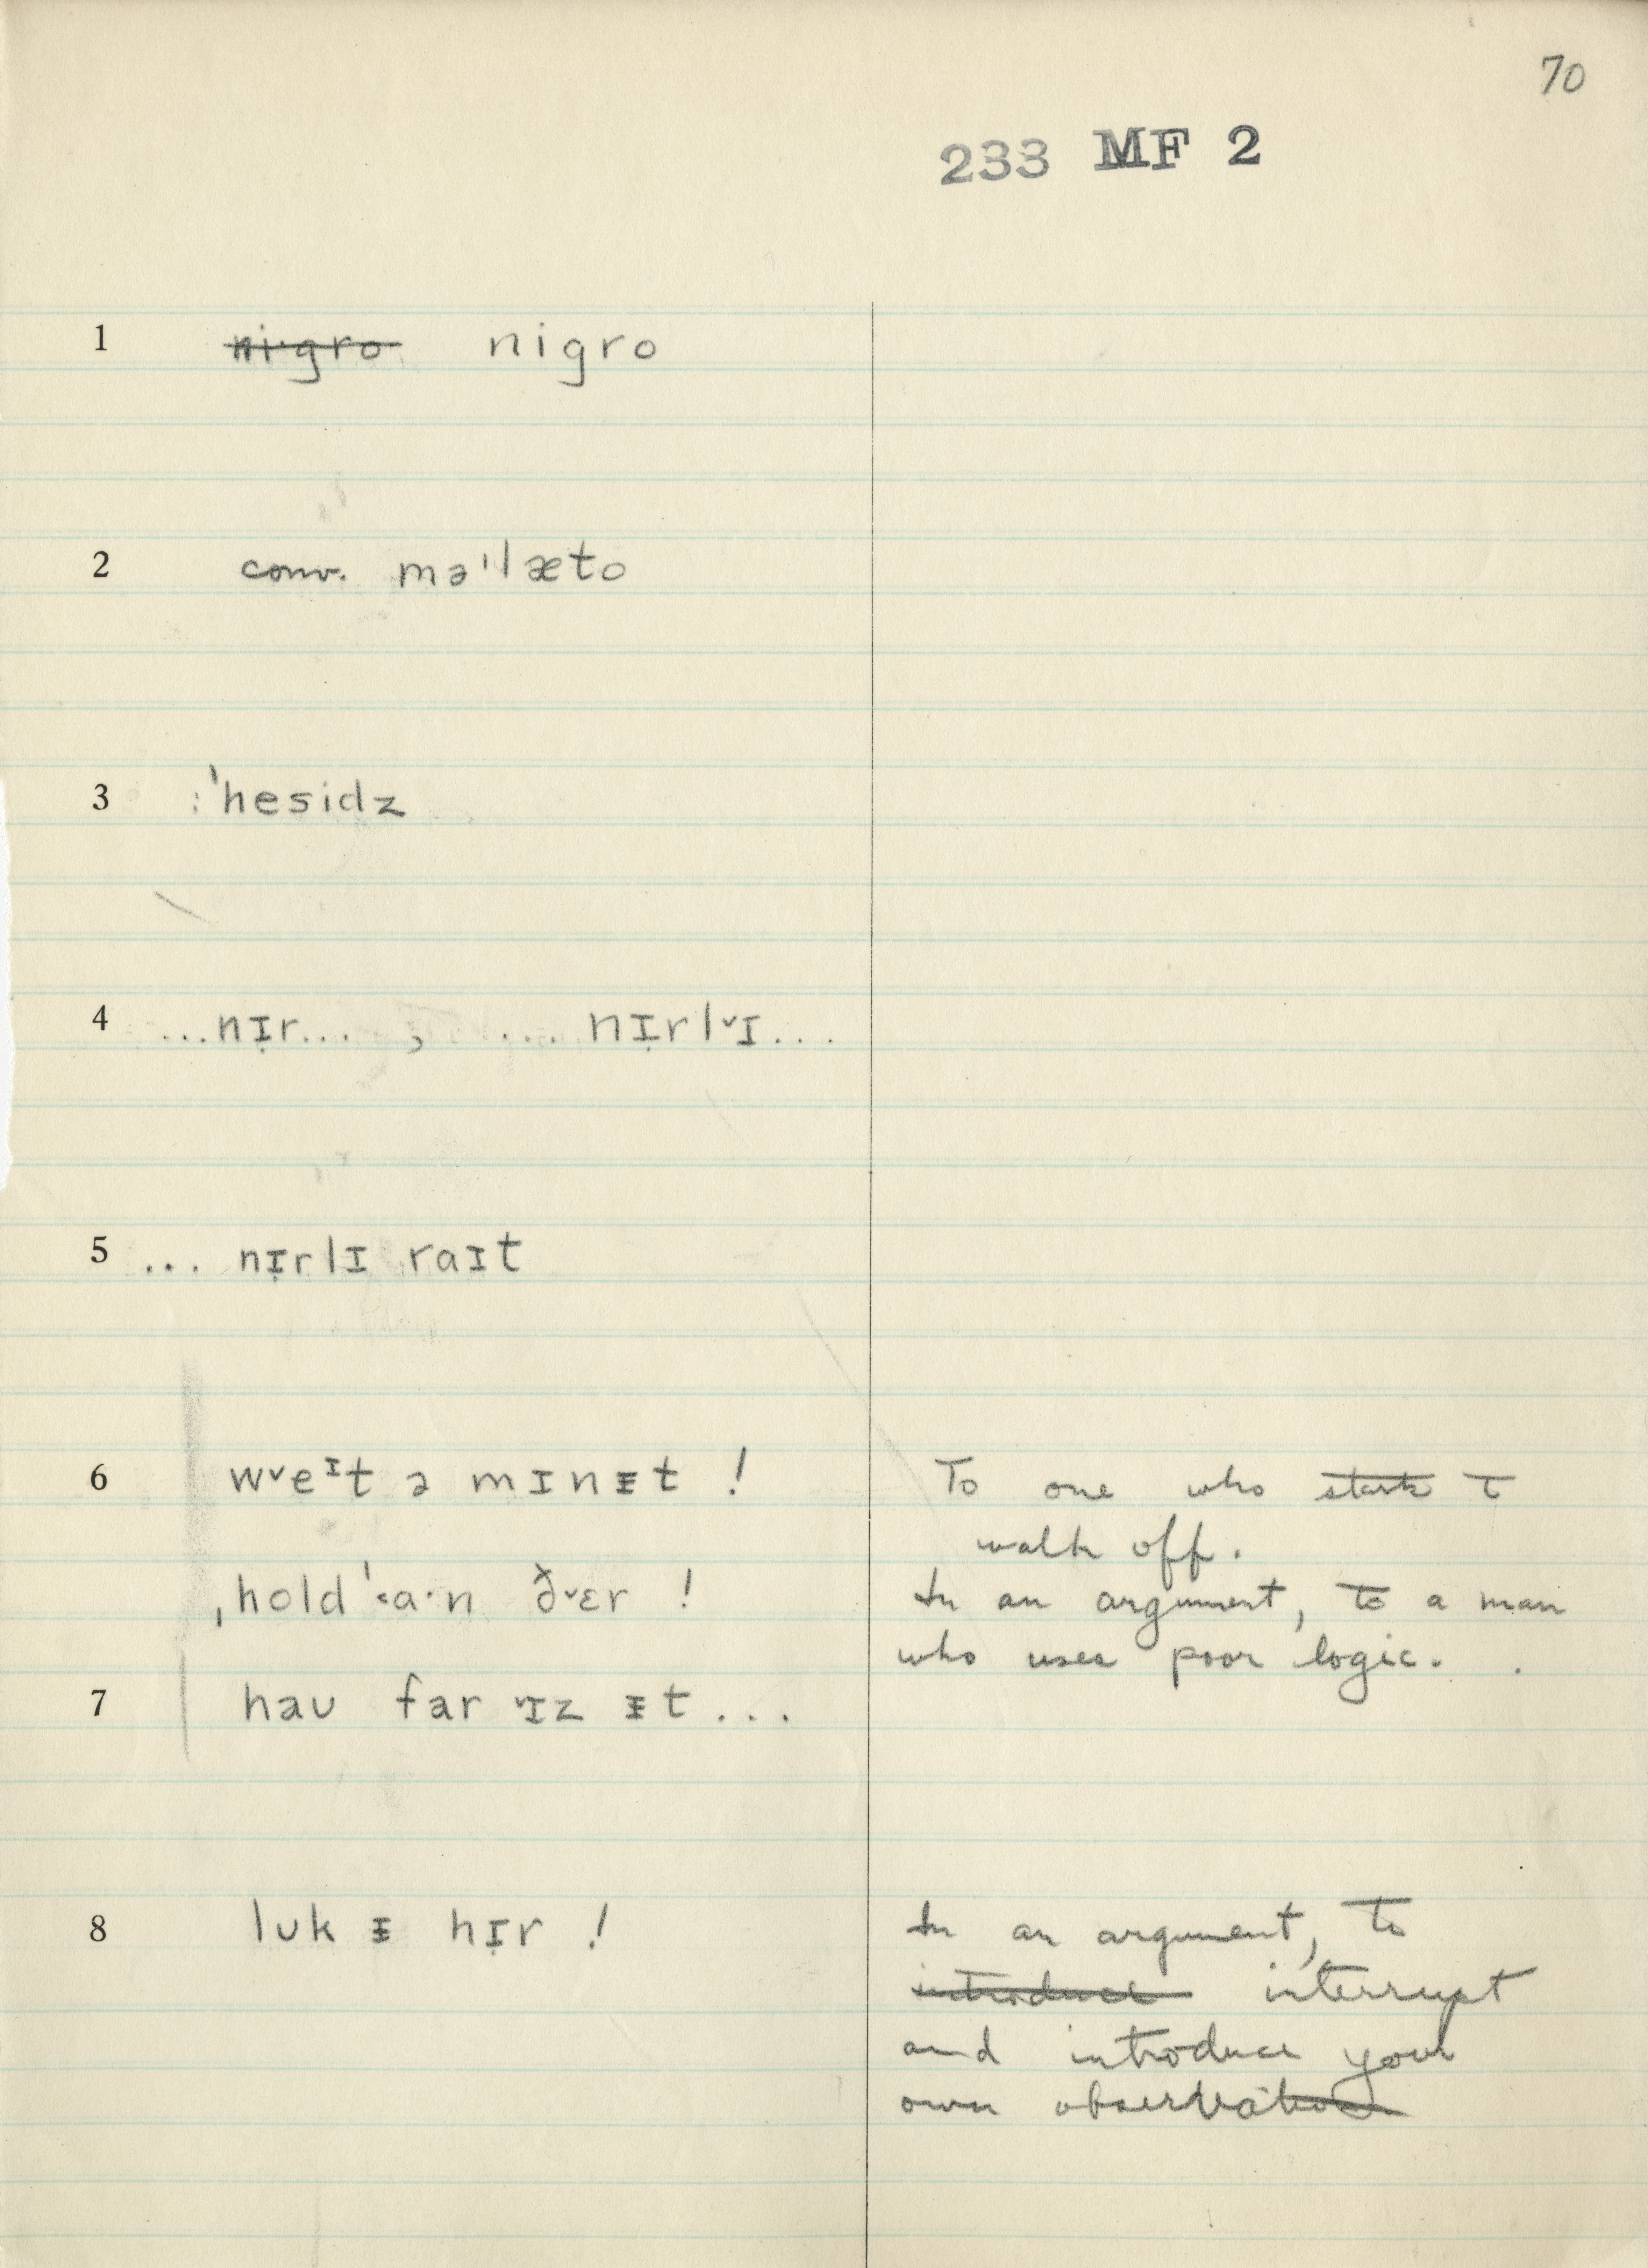 70
233 MF 2
1 ni·gro nigro
2 conv. mə'læto
3 :'hesidz
4 ...nɪ̣r... , .... nɪ̣rlᵛɪ...
5 ... nɪ̣rlɪ raɪt
6 wᵛeᶦt ə mɪnᵻt ! To one who starts to
walk off.
ˌhold '˂a·n ðᵛɛr ! In an argument, to a man
who uses poor logic.
7 haʊ far ᵛɪz ᵻt...
8 lʊk ᵻ hɪ̣r ! In an argument, to
introduce interrupt
and introduce your
own observation